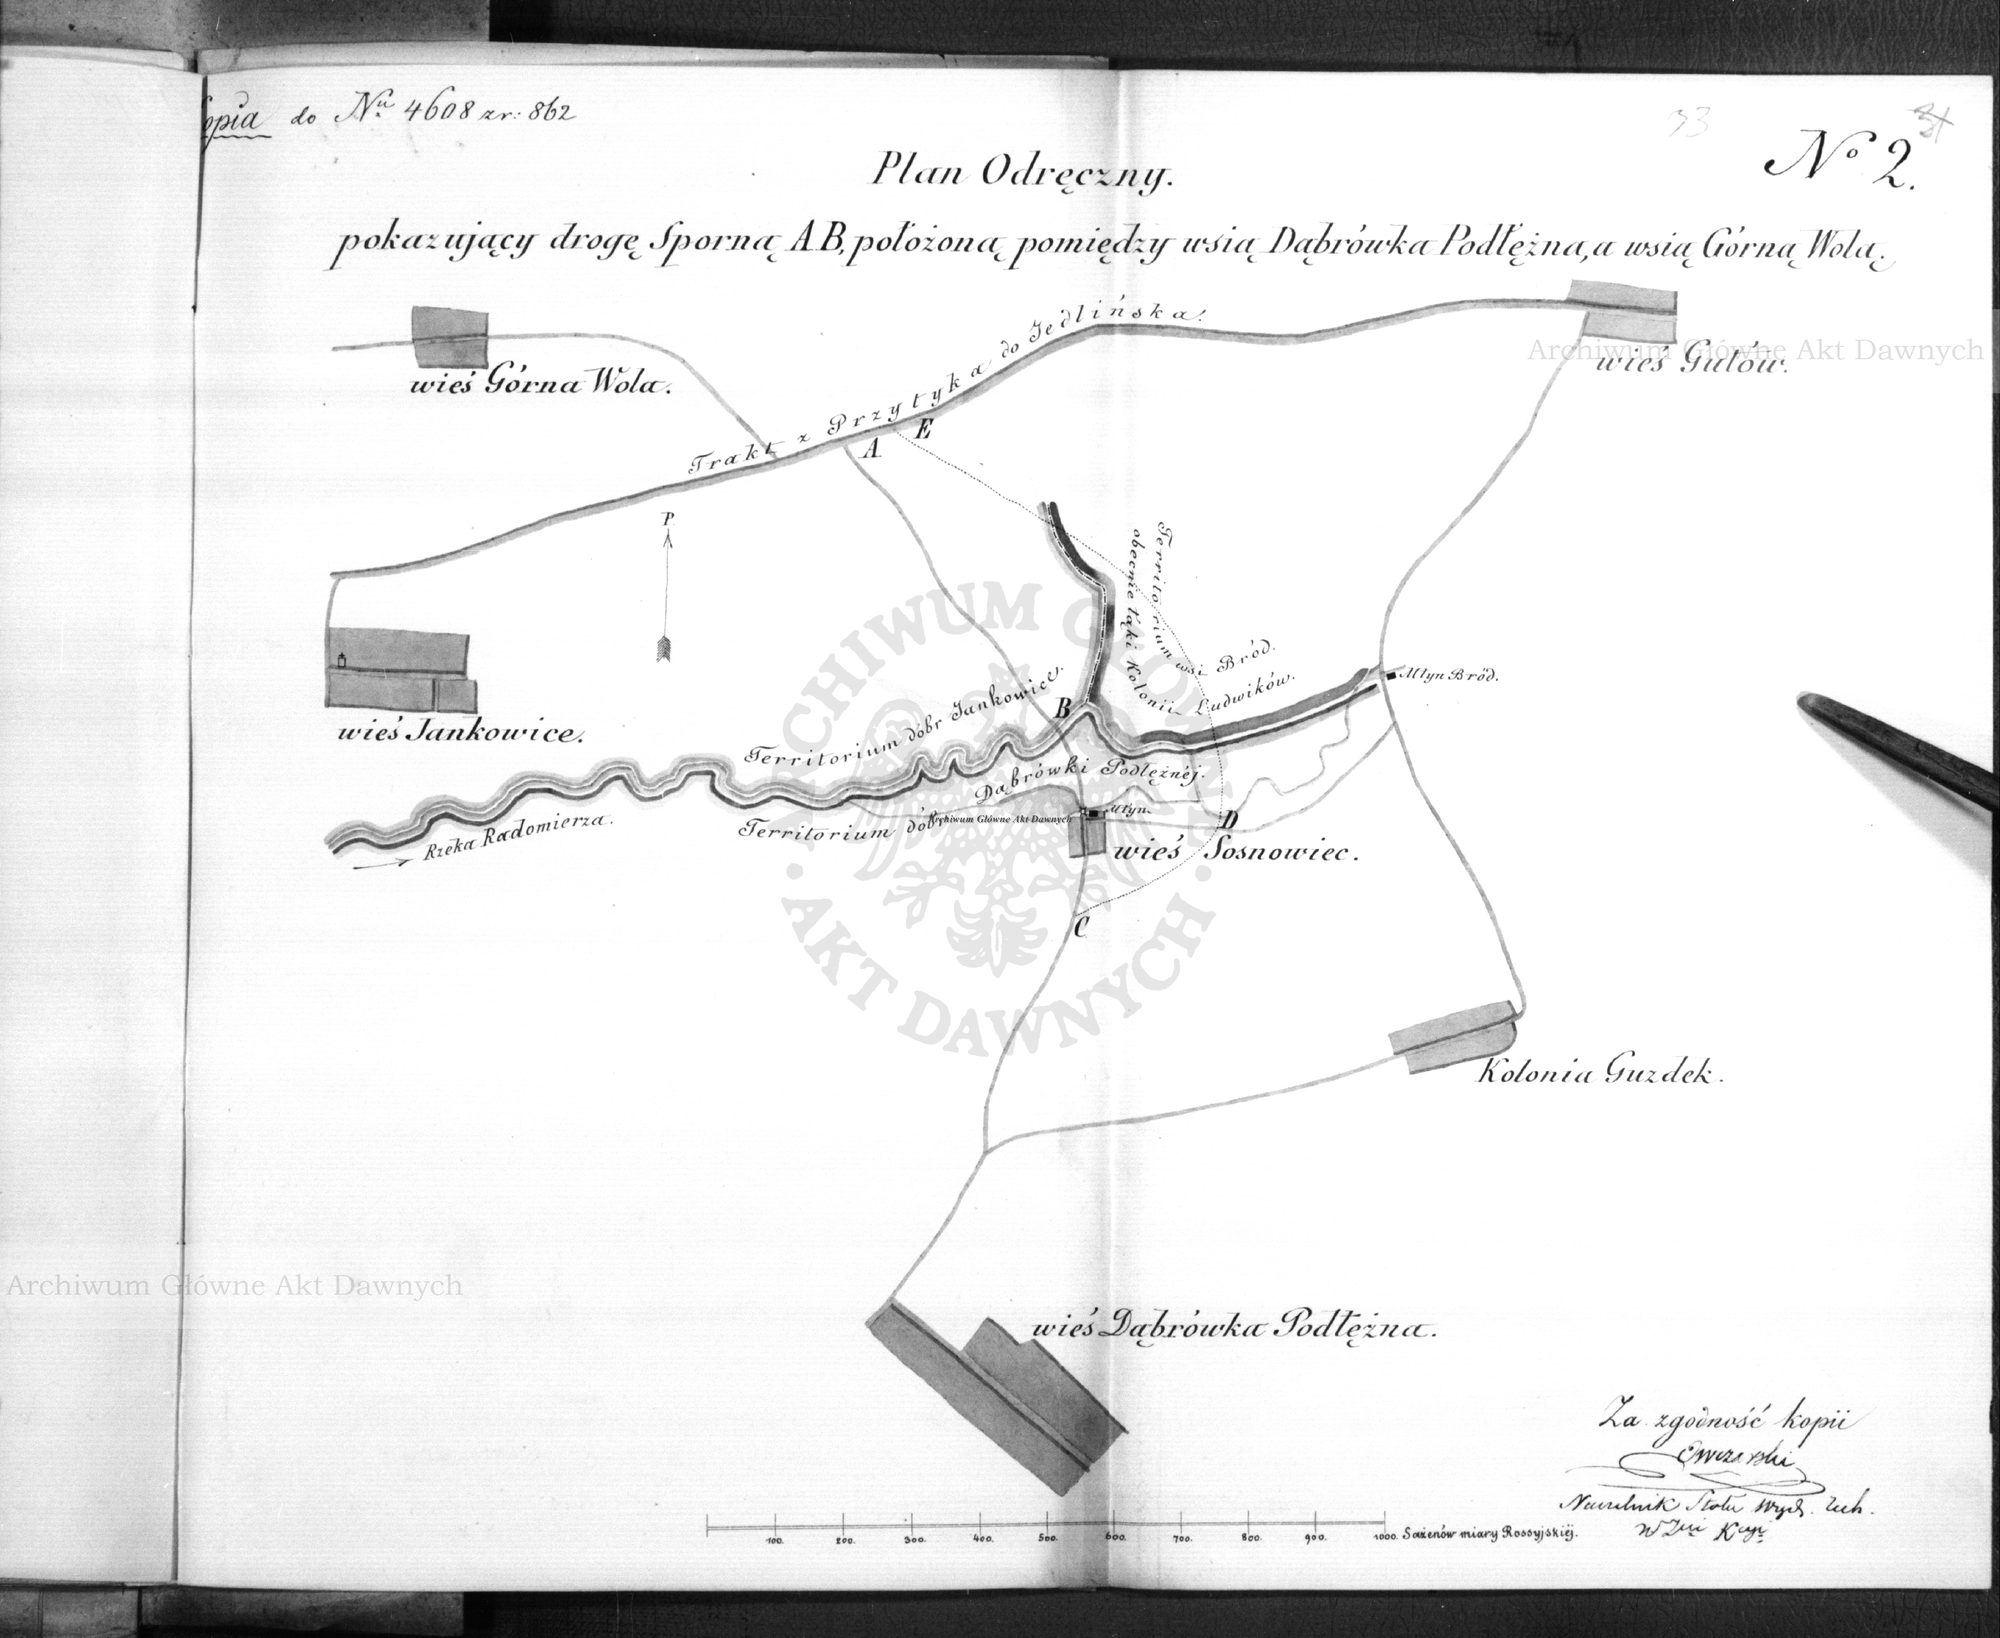 Kopia do Nu 4608 z r: 862
93
31
No 2.
Plan Odręczny.
pokazujący drogę Sporną A.B, położoną pomiędzy wsią Dąbrówka Podłężna, a wsią Górną Wolą.
wieś Górna Wola.
Trakt z Przytyka do Jedlińska.
wieś Gutów.
A
E
P.
Territorium wsi Bród.
obecnie łąki Kolonii Ludwików.
Młyn Bród.
wieś Jankowice.
Territorium dóbr Jankowice.
B
Territorium dóbr Dąbrówki Podłężnéj.
Rzeka Radomierza.
Młyn.
D
wieś Sosnowiec.
C
Kolonia Guzdek.
wieś Dąbrówka Podłężna.
Za zgodność kopii
Owczarski
Naczelnik Stołu Wydz. Tech.
100. 200. 300. 400. 500. 600. 700. 800. 900. 1000. Sażenów miary Rossyjskiéj.
Archiwum Główne Akt Dawnych
Archiwum Główne Akt Dawnych
Archiwum Główne Akt Dawnych
ARCHIWUM GŁÓWNE
AKT DAWNYCH